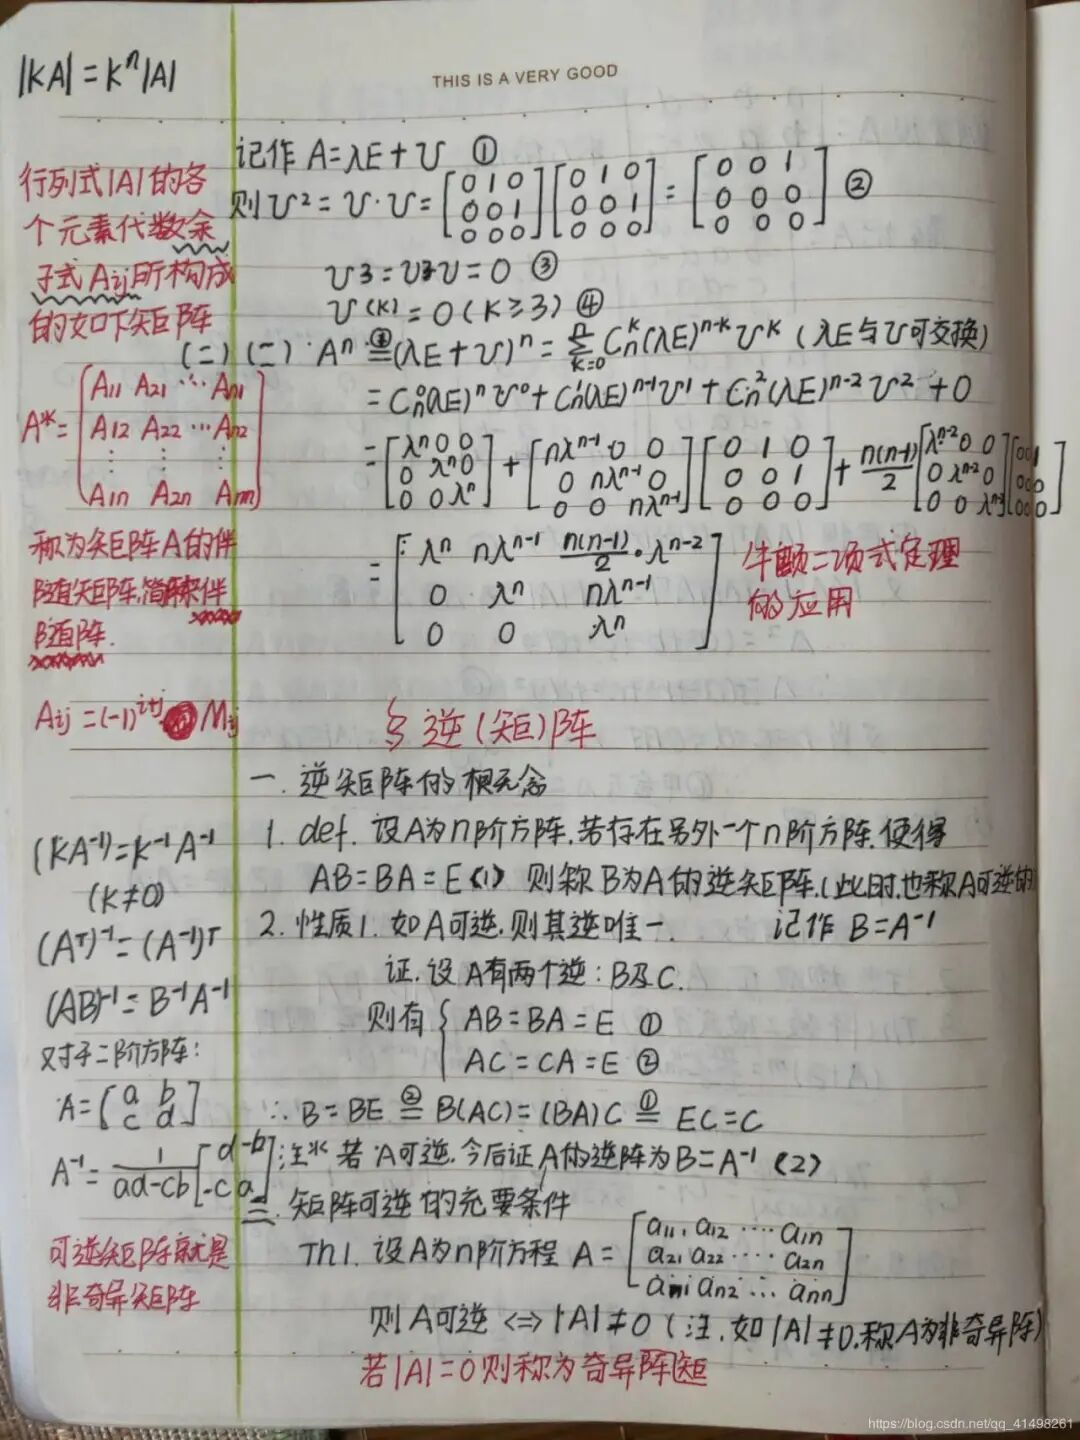 |KA| = Kⁿ|A|
THIS IS A VERY GOOD
行列式|A|的各
个元素代数余
子式Aij所构成
的如下矩阵
A* = [A11 A21 ⋯ An1
A12 A22 ⋯ An2
⋮ ⋮ ⋮
A1n A2n Ann]
称为矩阵A的伴
随矩阵,简称伴
随阵.
Aij = (-1)^(i+j) Mij
(KA⁻¹) = K⁻¹A⁻¹
(K≠0)
(Aᵀ)⁻¹ = (A⁻¹)ᵀ
(AB)⁻¹ = B⁻¹A⁻¹
对于二阶方阵:
A = [a b
c d]
A⁻¹ = 1/(ad-cb) [d -b
-c a]
可逆矩阵就是
非奇异矩阵
记作 A = λE + U ①
则U² = U·U = [0 1 0; 0 0 1; 0 0 0] [0 1 0; 0 0 1; 0 0 0] = [0 0 1; 0 0 0; 0 0 0] ②
U³ = U²U = 0 ③
U^(K) = 0 (K≥3) ④
(二)(二) Aⁿ = (λE+U)ⁿ = Σ(k=0→n) Cₙᵏ(λE)ⁿ⁻ᵏUᵏ (λE与U可交换)
= Cₙ⁰(λE)ⁿU⁰ + Cₙ¹(λE)ⁿ⁻¹U¹ + Cₙ²(λE)ⁿ⁻²U² + 0
= [λⁿ 0 0; 0 λⁿ 0; 0 0 λⁿ] + [nλⁿ⁻¹ 0 0; 0 nλⁿ⁻¹ 0; 0 0 nλⁿ⁻¹] [0 1 0; 0 0 1; 0 0 0] + n(n-1)/2 [λⁿ⁻² 0 0; 0 λⁿ⁻² 0; 0 0 λⁿ⁻²] [0 0 1; 0 0 0; 0 0 0]
= [λⁿ nλⁿ⁻¹ n(n-1)/2·λⁿ⁻²
0 λⁿ nλⁿ⁻¹
0 0 λⁿ]
牛顿二项式定理
的应用
§ 逆(矩)阵
一. 逆矩阵的概念
1. def. 设A为n阶方阵,若存在另外一个n阶方阵,使得
AB = BA = E (1) 则称B为A的逆矩阵,(此时,也称A可逆的)
2. 性质1. 如A可逆,则其逆唯一. 记作 B = A⁻¹
证. 设A有两个逆: B及C.
则有 { AB = BA = E ①
AC = CA = E ②
∴ B = BE ②= B(AC) = (BA)C ①= EC = C
注※ 若A可逆,今后证A的逆阵为B = A⁻¹ (2)
二. 矩阵可逆的充要条件
Th1. 设A为n阶方程 A = [a11, a12 ⋯ a1n
a21 a22 ⋯ a2n
an1 an2 ⋯ ann]
则A可逆 <=> |A| ≠ 0 (注.如|A|≠0.称A为非奇异阵)
若|A|=0则称为奇异阵矩
https://blog.csdn.net/qq_41498261